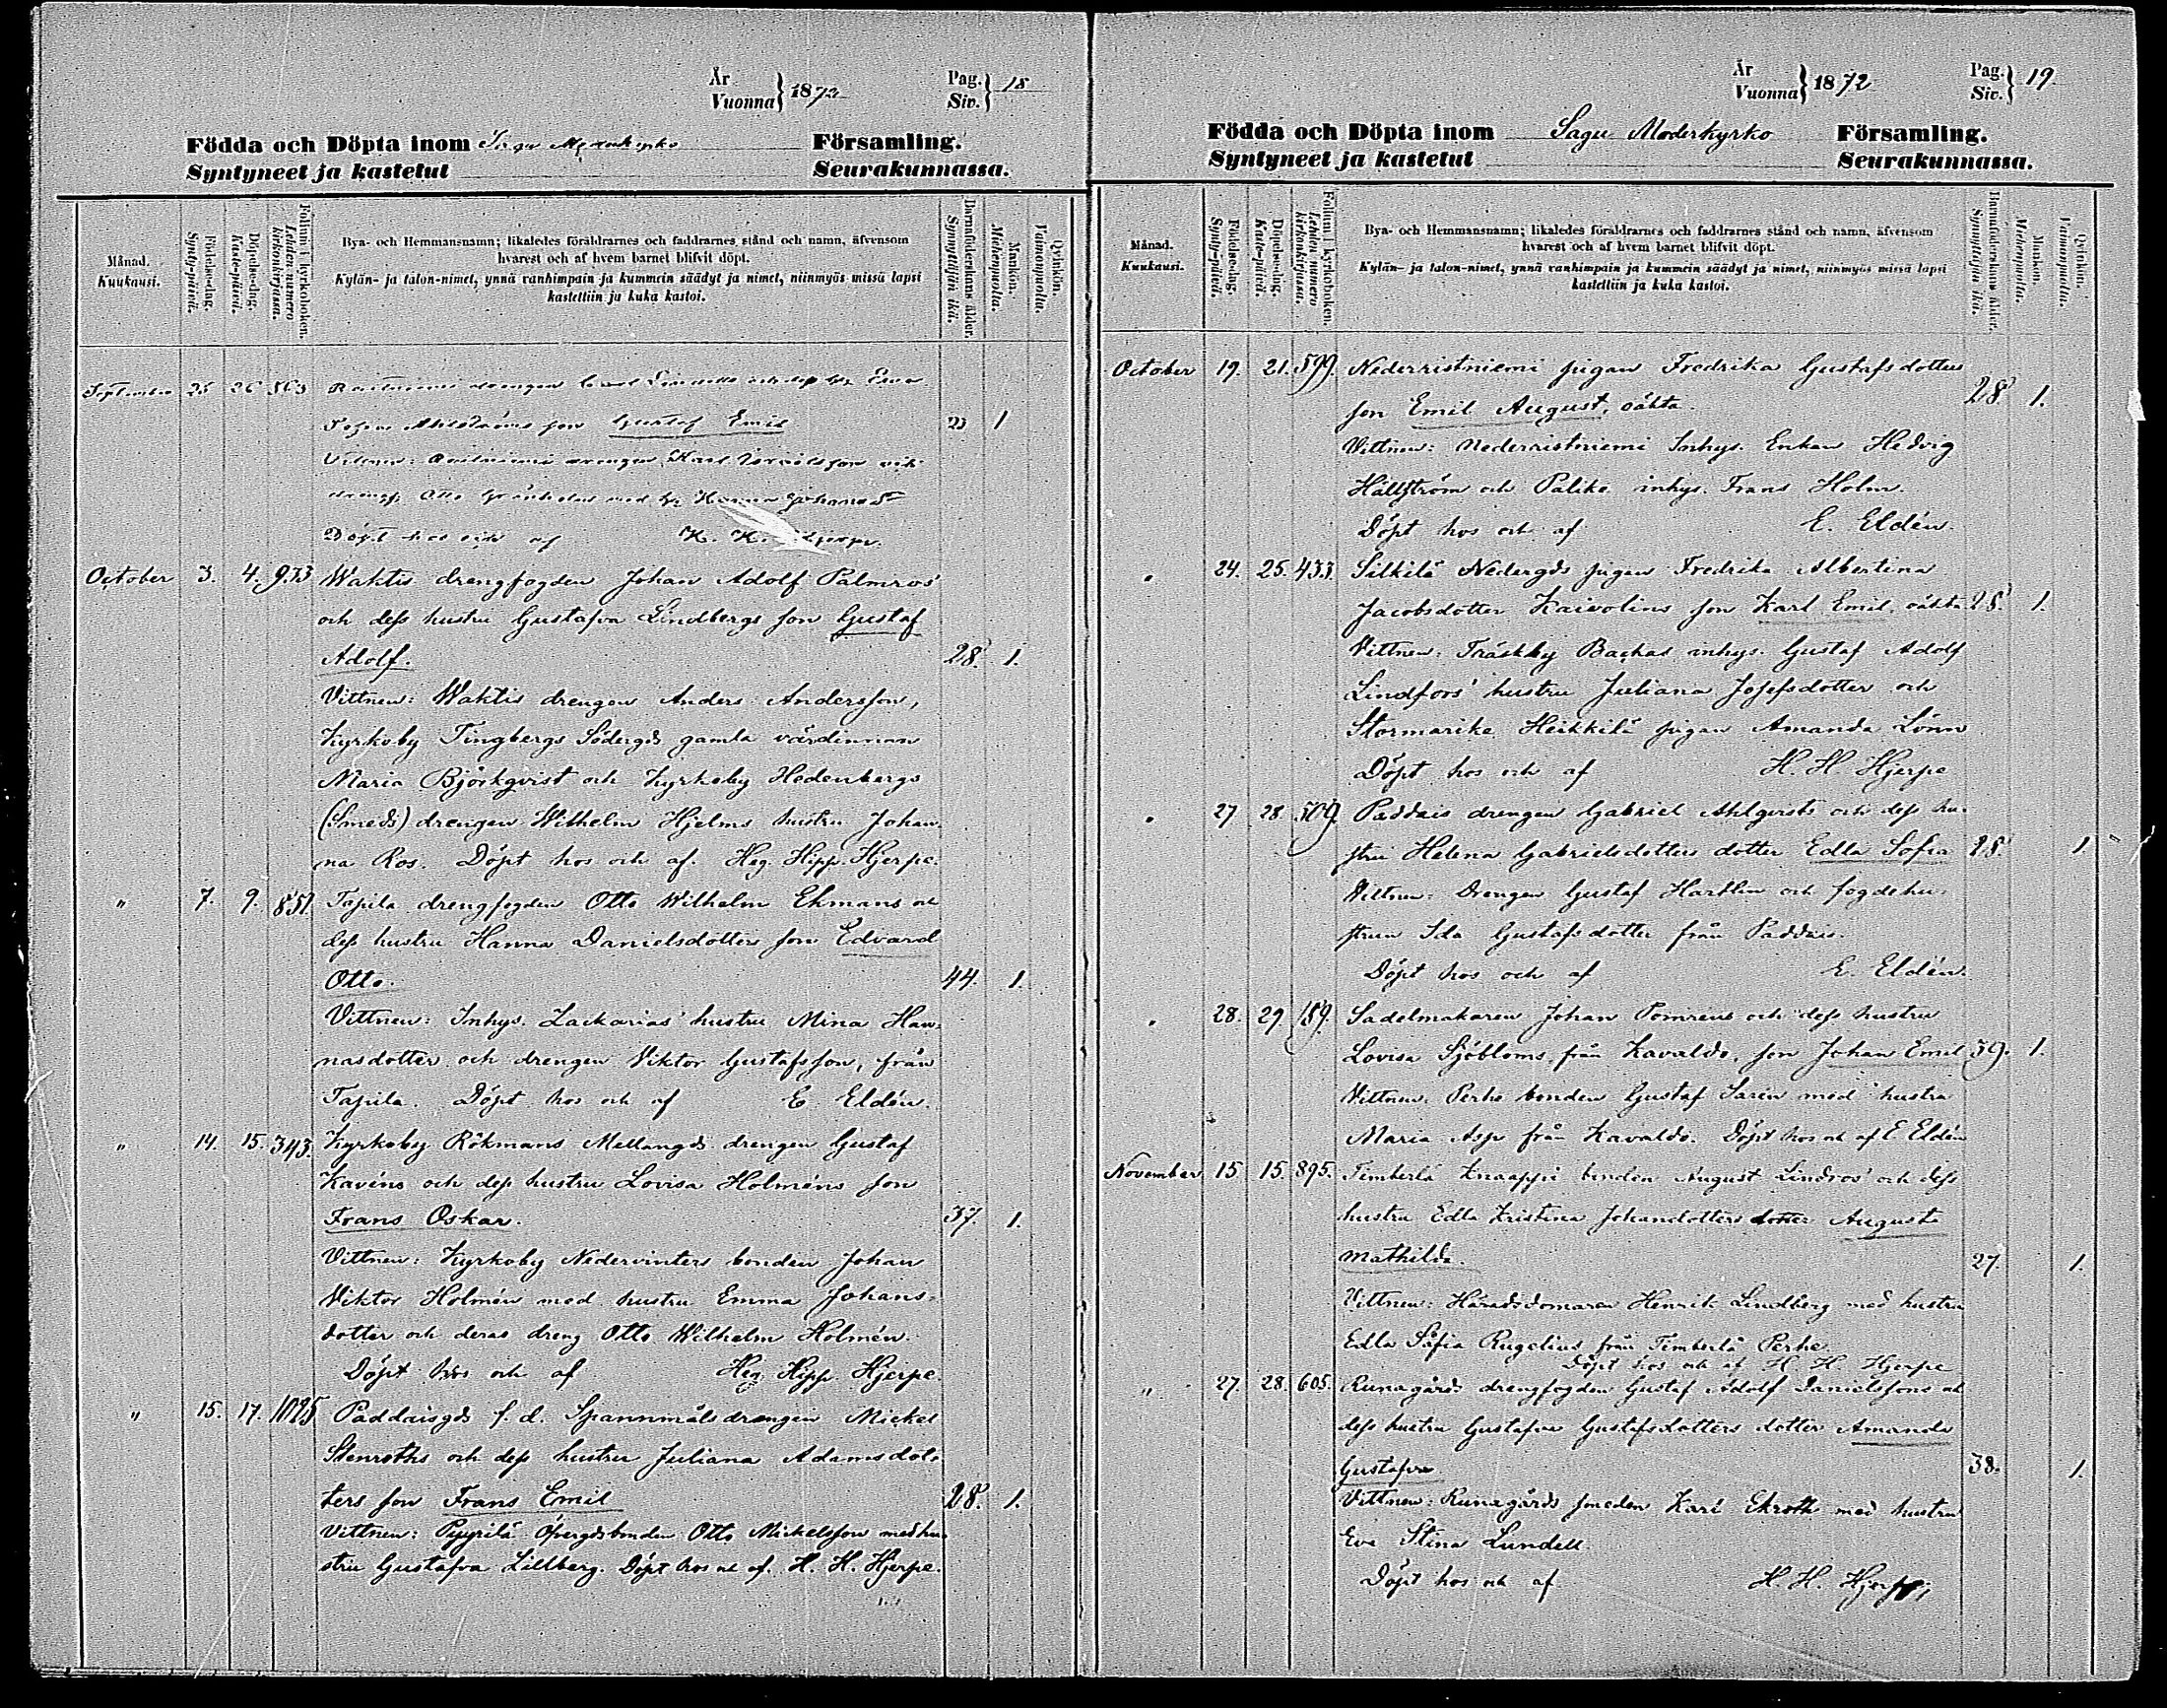 År
Vuonna } 1872
Pag.
Siv. } 18
Födda och Döpta inom Sagu Moderkyrko Församling.
Syntyneet ja kastetut Seurakunnassa.
Månad.
Kuukausi.
Födelse-dag.
Synty-päivä.
Döpelse-dag.
Kaste-päivä.
Folium i kyrkoboken.
Lehden numero kirkonkirjassa.
Bya- och Hemmansnamn; likaledes föräldrarnes och faddrarnes stånd och namn, äfvensom
hvarest och af hvem barnet blifvit döpt.
Kylän- ja talon-nimet, ynnä vanhimpain ja kummein säädyt ja nimet, niinmyös missä lapsi
kastettiin ja kuka kastoi.
Barnaföderskans ålder.
Synnyttäjän ikä.
Mankön.
Miehenpuolia.
Qvinkön.
Vaimonpuolia.
September 25 26 563 drengen och dess h. Eva
son Gustaf Emil 1
Vittnen: drengen Karl
Otto med h. Johansd:r
Döpt hos och af H. H. Hjerpe.
October 3. 4. 933 Waktis drengfogden Johan Adolf Palmros'
och dess hustru Gustafva Lindbergs son Gustaf
Adolf. 28. 1.
Vittnen: Waktis drengen Anders Andersson,
Kyrkoby Tingbergs Södergds gamla värdinnan
Maria Björkqvist och Kyrkoby Hedenbergs
(Smeds) drengen Wilhelm Hjelms hustru Johan-
na Ros. Döpt hos och af. Heg. Hipp. Hjerpe.
" 7. 9. 851. Tapila drengfogden Otto Wilhelm Ekmans och
dess hustru Hanna Danielsdotters son Edvard
Otto. 44. 1.
Vittnen: Inhys. Zackarias' hustru Mina Han-
nasdotter och drengen Viktor Gustafsson, från
Tapila. Döpt hos och af E. Eldén.
" 14. 15. 343. Kyrkoby Rökmans Mellangds drengen Gustaf
Kavéns och dess hustru Lovisa Holméns son
Frans Oskar. 37. 1.
Vittnen: Kyrkoby Nedervinters bonden Johan
Viktor Holmén med hustru Emma Johans-
dotter och deras dreng Otto Wilhelm Holmén.
Döpt hos och af Heg Hipp. Hjerpe.
" 15. 17. 1025 Paddaisgds f. d. Spannmålsdrengen Mickel
Stenroths och dess hustru Juliana Adamsdot-
ters son Frans Emil 28. 1.
Vittnen: Pyyrilä Öfvergdsbonden Otto Mickelsson med hu-
stru Gustafva Lillberg. Döpt hos och af. H. H. Hjerpe.
År
Vuonna } 1872
Pag.
Siv. } 19.
Födda och Döpta inom Sagu Moderkyrko Församling.
Syntyneet ja kastetut Seurakunnassa.
Månad.
Kuukausi.
Födelse-dag.
Synty-päivä.
Döpelse-dag.
Kaste-päivä.
Folium i kyrkoboken.
Lehden numero kirkonkirjassa.
Bya- och Hemmansnamn; likaledes föräldrarnes och faddrarnes stånd och namn, äfvensom
hvarest och af hvem barnet blifvit döpt.
Kylän- ja talon-nimet, ynnä vanhimpain ja kummein säädyt ja nimet, niinmyös missä lapsi
kastettiin ja kuka kastoi.
Barnaföderskans ålder.
Synnyttäjän ikä.
Mankön.
Miehenpuolia.
Qvinkön.
Vaimonpuolia.
October 19. 21. 599. Nederristniemi pigan Fredrika Gustafsdotters
son Emil August, oäkta. 28. 1.
Vittnen: Nederristniemi Inhys. Enkan Hedvig
Hällström och Paliko inhys. Frans Holm.
Döpt hos och af E. Eldén.
" 24. 25. 433. Silkilä Nedergds pigan Fredrika Albertina
Jacobsdotter Kaivolins son Karl Emil, oäkta 28. 1.
Vittnen: Träskby Backas inhys. Gustaf Adolf
Lindfors' hustru Juliana Josefsdotter och
Stormarike Heikkilä pigan Amanda Lönn
Döpt hos och af H. H. Hjerpe
" 27 28. 509. Paddais drengen Gabriel Ahlqvists och dess hu-
stru Helena Gabrielsdotters dotter Edla Sofia 28. 1.
Vittnen: Drengen Gustaf Hartlin och fogdehu-
strun Ida Gustafsdotter från Paddais.
Döpt hos och af E. Eldén.
" 28. 29 189. Sadelmakaren Johan Pomrens och dess hustru
Lovisa Sjöbloms, från Kavaldo, son Johan Emil 39. 1.
Vittnen. Perho bonden Gustaf Sarén med hustru
Maria Asp från Kavaldo. Döpt hos och af E Eldén
November 15 15. 895. Timberlä Knaappi bonden August Lindros' och dess
hustru Edla Kristina Johansdotters dotter Augusta
Mathilda. 27 1.
Vittnen: Häradsdomaren Henrik Lindberg med hustru
Edla Sofia Rugelius från Timberlä Perhe.
Döpt hos och af H. H. Hjerpe
" 27. 28. 605. Runagårds drengfogden Gustaf Adolf Danielssons och
dess hustru Gustafva Gustafsdotters dotter Amanda
Gustafva 38. 1.
Vittnen: Runagårds smeden Karl Ekroth med hustru
Eva Stina Lundell
Döpt hos och af H. H. Hjerpe;